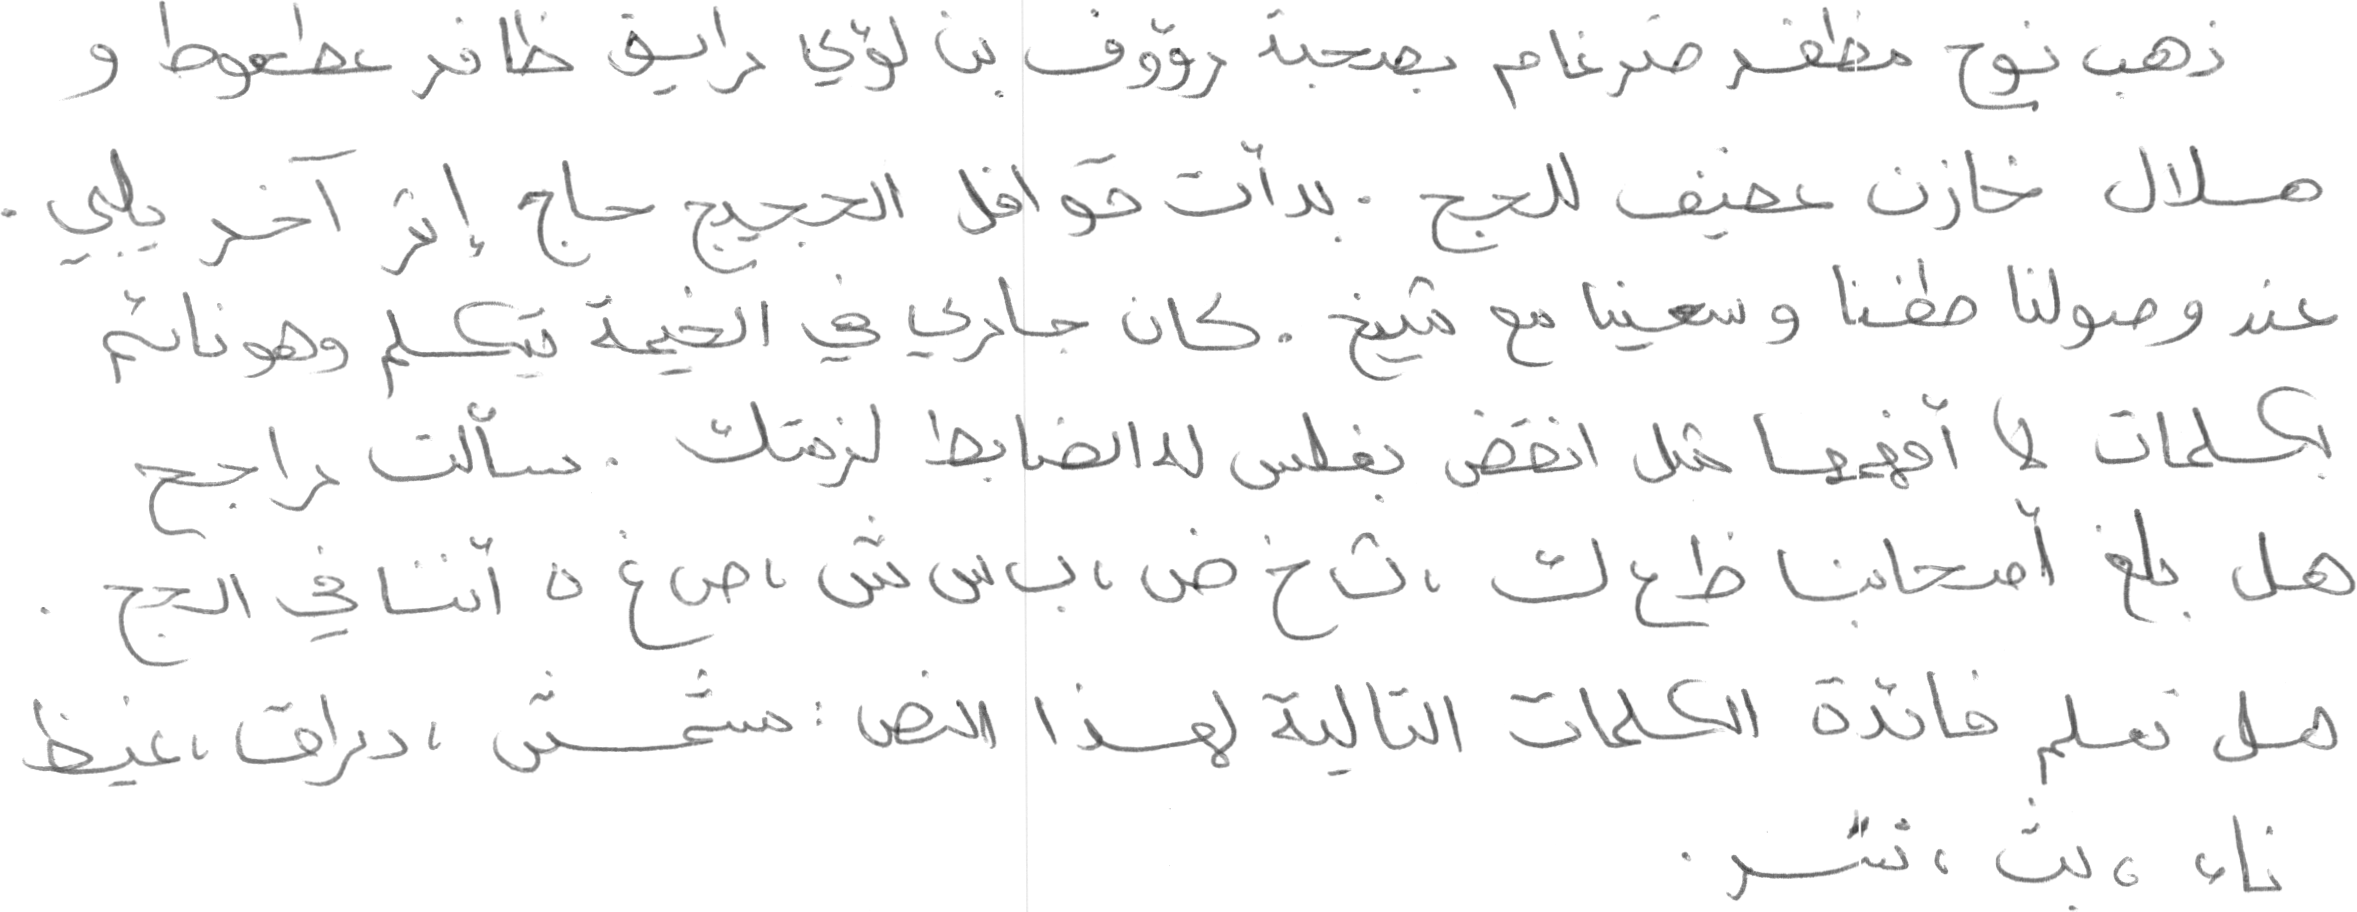 ذهب نوح مظفر ضرغام بصحبة رؤوف بن لؤي رايق ظافر عطعوط و
هلال خازن عفيف للحج . بدأت قوافل الحجيج حاج إثر آخر يلبي .
عند وصولنا طفنا وسعينا مع شيخ . كان جاري في الخيمة يتكلم وهو نائم
بكلمات لا أفهمها مثل انقض بغلس لد الضابط لزمتك . سألت راجح
هل بلغ أصحابنا ظ ع ث ، ث خ ض ، ب س ش ، ص غ ه أننا في الحج .
هل تعلم فائدة الكلمات التالية لهذا النص : مشمش ، دراق ، غيظ
ناء ، بث ، نشر .